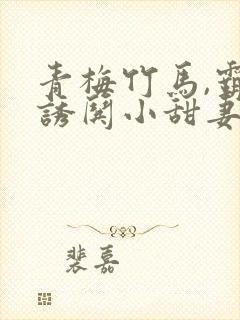 青梅竹马,霸
誘関小甜妻
裴嘉